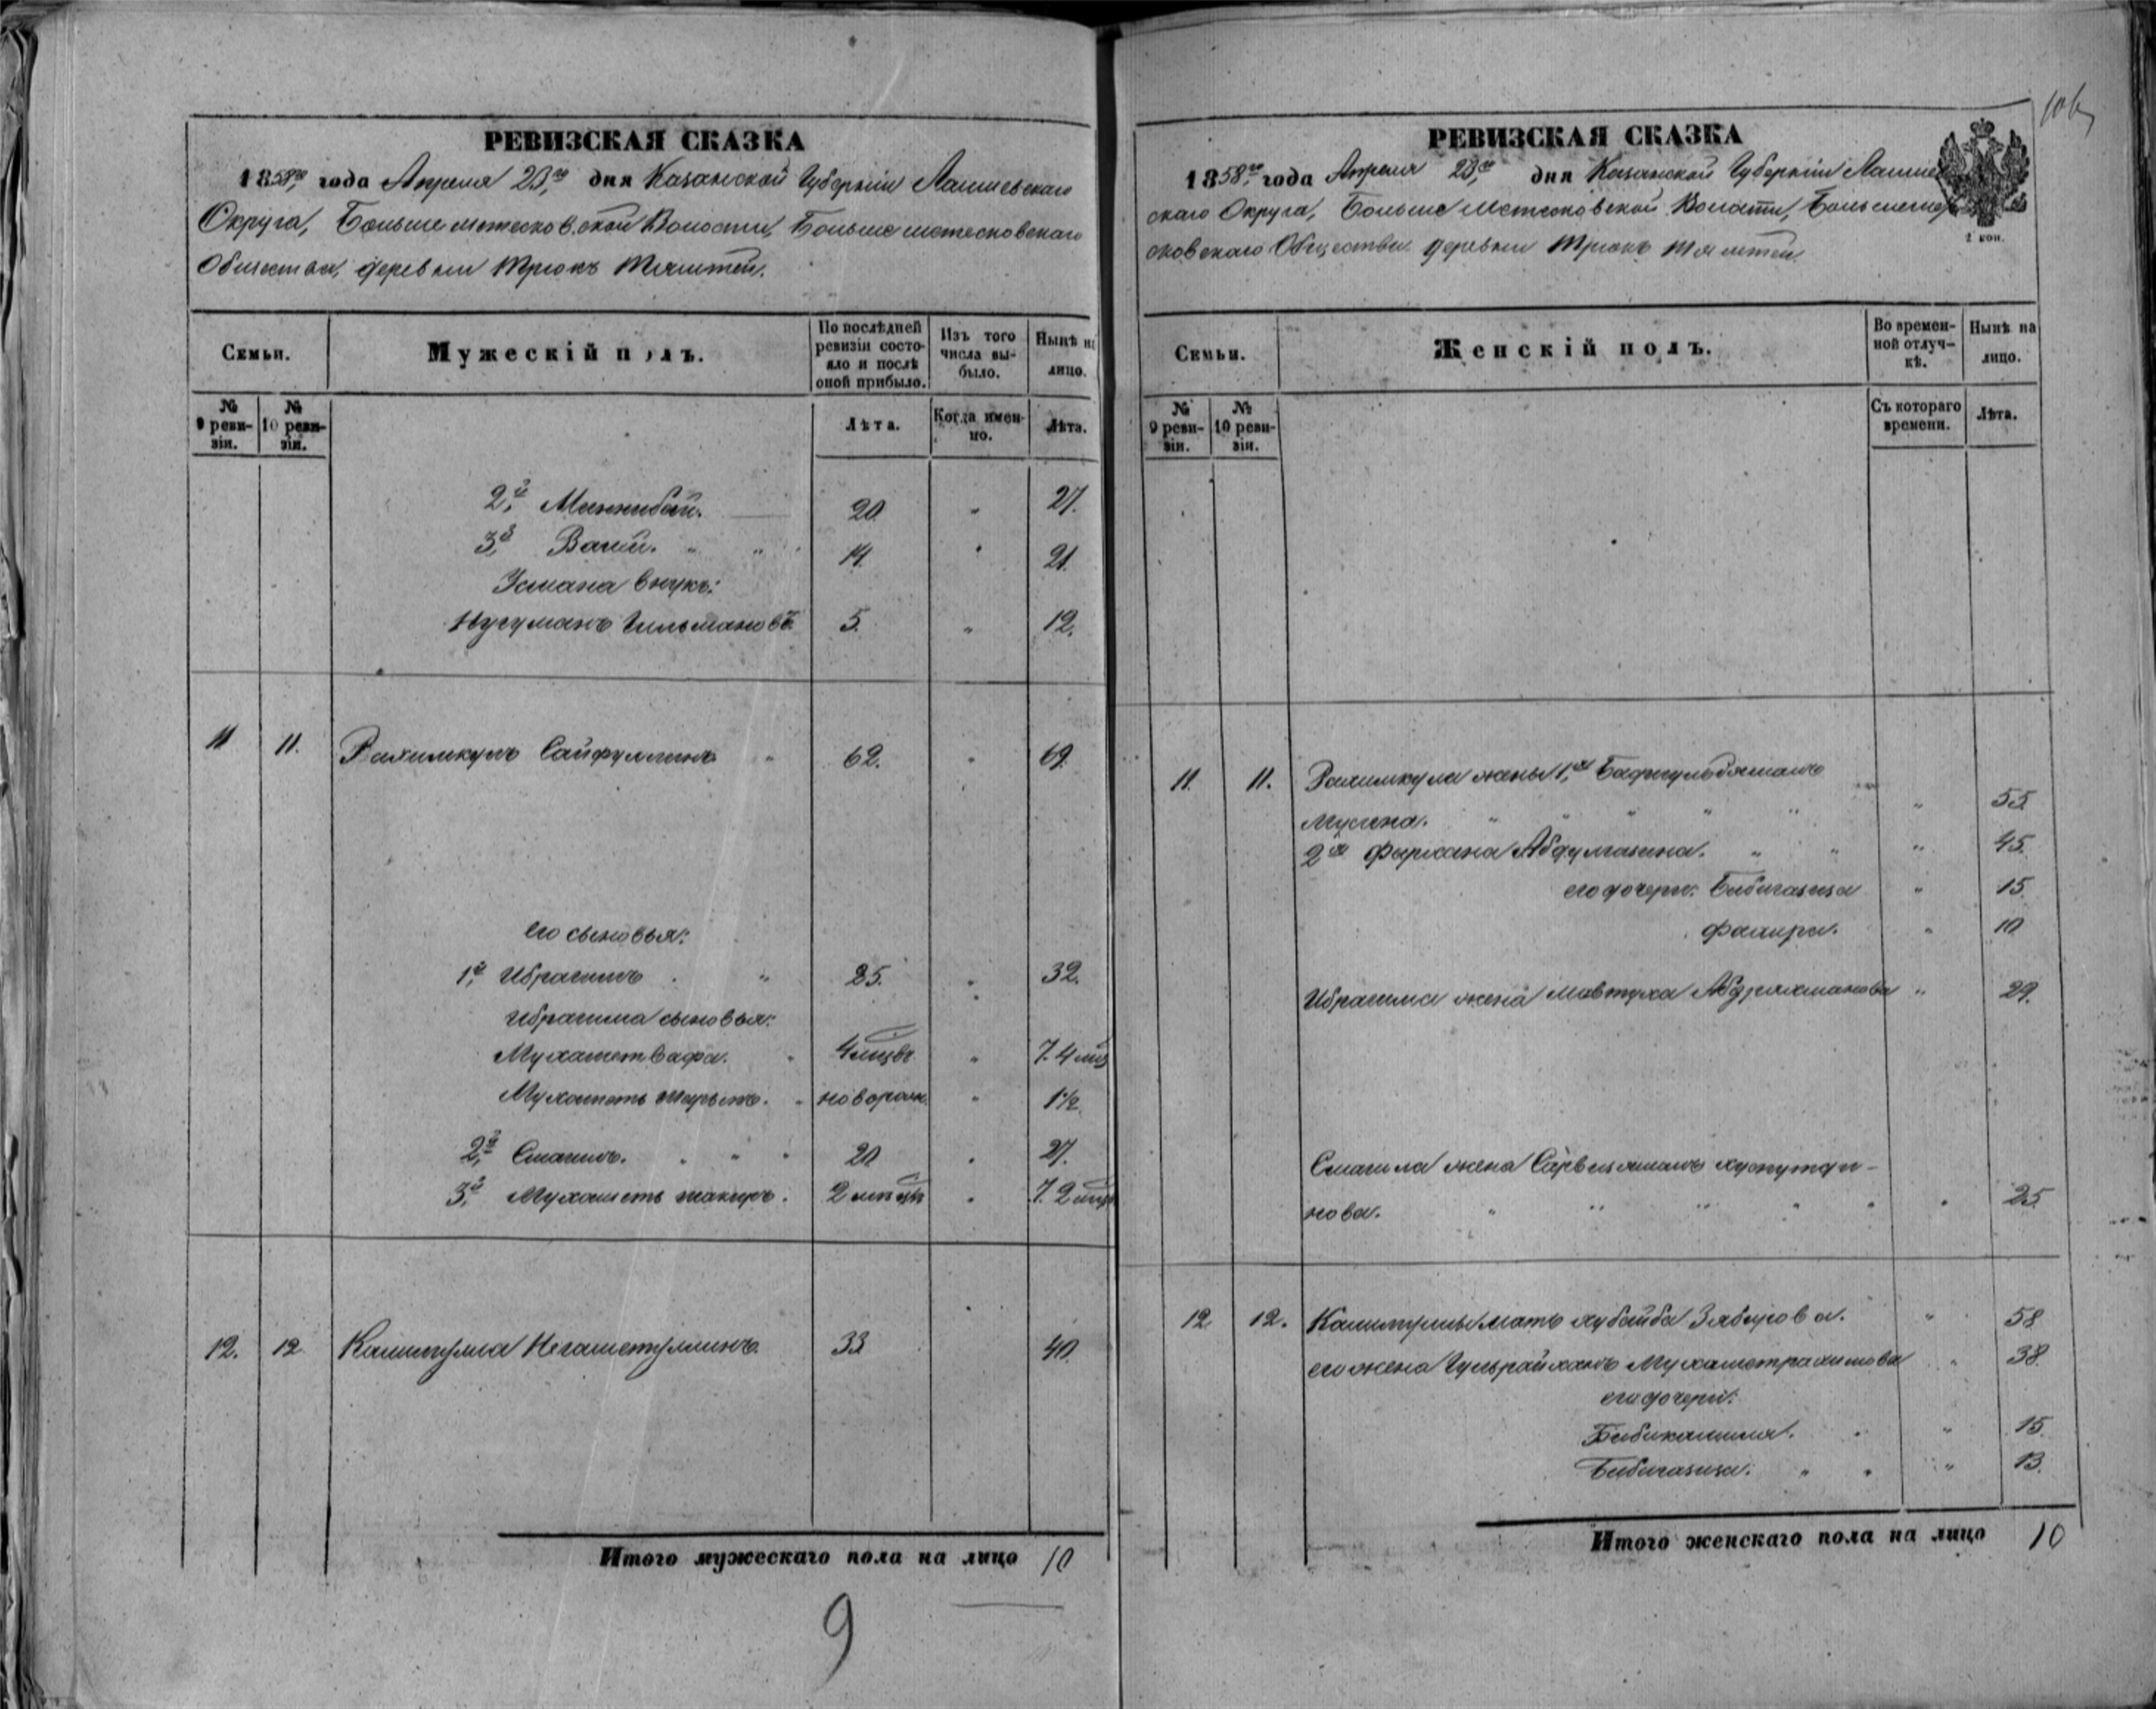 РЕВИЗСКАЯ СКАЗКА
1858го года Апреля 23го дня Казанской Губерніи Лаишевскаго
Округа, Большеметесковской Волости, Большеметесковскаго
Общества, деревни Трюкъ Тямтей.
Семьи.
Мужескій полъ.
По послѣдней ревизіи состояло и послѣ оной прибыло.
Изъ того числа выбыло.
Нынѣ на лицо.
№ 9 ревизіи.
№ 10 ревизіи.
Лѣта.
Когда именно.
Лѣта.
2й Миннибай. 20 " 27.
3й Вагий. " " 14. " 21.
Усмана внукъ:
Нугуманъ Гильмановъ. 5. " 12.
11 11. Рахимкулъ Сайфуллинъ " 62. " 69.
его сыновья:
1й Ибрагимъ " 25. " 32.
Ибрагима сыновья:
Мухаметвафа. " 4 мцвъ " 7. 4 мц
Мухаметь " новорож. " 1½
2й Смагилъ. " " " 20 " 27.
3й Мухаметь шакиръ. 2 мцвъ " 7. 2 мцв
12. 12 Калимулла Негаметуллинъ. 33 40.
Итого мужескаго пола на лицо 10
9
106
РЕВИЗСКАЯ СКАЗКА
1858го года Апреля 23го дня Казанской Губерніи Лаише
скаго Округа, Большеметесковской Волости, Большемете
сковскаго Общества деревни Трюкъ Тямтей.
2 коп.
Семьи.
Женскій полъ.
Во временной отлучкѣ.
Нынѣ на лицо.
№ 9 ревизіи.
№ 10 ревизіи.
Съ котораго времени.
Лѣта.
11. 11. Рахимкула жены 1я
Мусина. " " " " " " 55.
2я Абдулазина. " " " 45.
его дочери: Бибигазиза " 15.
Фагира. " 10
Ибрагима жена Мавтуха Абдряхманова " 29.
Смагила жена
нова. " " " " " " 25.
12 12. Калимуллы мать Хубайба Зябирова. " 58
его жена Гульрайханъ Мухаметрахимова " 38.
его дочери:
Бибикамиля. " " 15.
Бибигазиза. " " " 13.
Итого женскаго пола на лицо 10